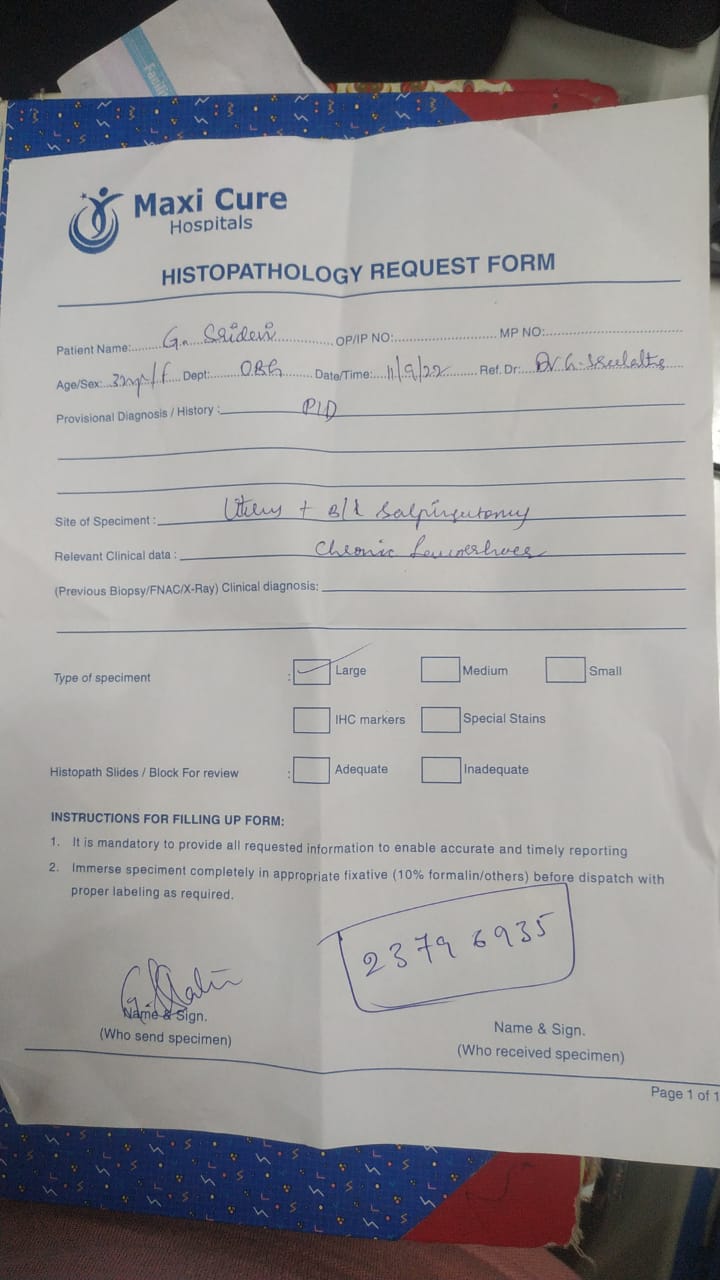 Maxi Cure
Hospitals
HISTOPATHOLOGY REQUEST FORM
Patient Name:........G. Sridevi..............OP/IP NO:.......................... MP NO:..................................
Age/Sex:..32yrs/f....Dept:........OBG........Date/Time:....11/9/22........Ref. Dr:....Dr G. Sreelatha....
Provisional Diagnosis / History : PID
Site of Specimen : Uterus + B/L Salpingectomy
Relevant Clinical data : Chronic
(Previous Biopsy/FNAC/X-Ray) Clinical diagnosis:
Type of speciment : Large Medium Small
IHC markers Special Stains
Histopath Slides / Block For review : Adequate Inadequate
INSTRUCTIONS FOR FILLING UP FORM:
1. It is mandatory to provide all requested information to enable accurate and timely reporting
2. Immerse speciment completely in appropriate fixative (10% formalin/others) before dispatch with
proper labeling as required.
23796935
Name & Sign.
(Who send specimen)
Name & Sign.
(Who received specimen)
Page 1 of 1